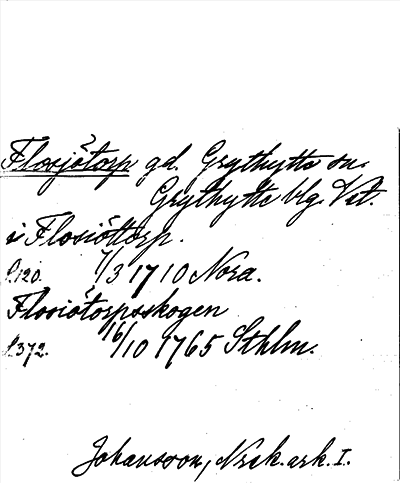 Flosjötorp gd. Grythytte sn.
Grythytte blg. Vst.
i Flosiöttorp.
f.120. 7/3 1710 Nora.
Flosiötorpsskogen
f.372. 16/10 1765 Sthlm.
Johansson, Nrak. ark. I.